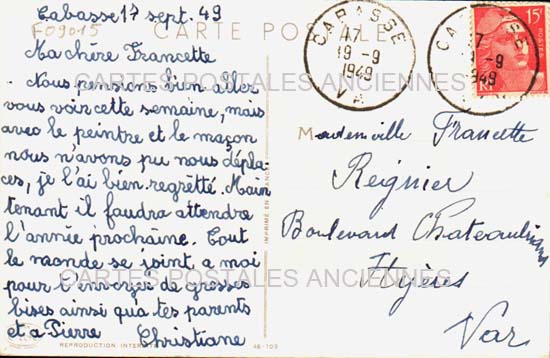 Cabasse 17 sept. 49
F09015
CARTE POSTALE
Ma chère Francette
Nous pensions bien aller
vous voir cette semaine, mais
avec le peintre et le maçon
nous n'avons pu nous dépla-
ces, je l'ai bien regretté. Main
tenant il faudra attendre
l'année prochaine. Tout
le monde se joint a moi
pour t'envoyer de grosses
bises ainsi qua tes parents
et a Pierre Christiane
REPRODUCTION INTERDITE
46-103
IMPRIMÉ EN FRANCE
CABASSE
17
19-9
1949
VAR
CABASSE
17
-9
1949
15F
RF
Mademoiselle Francette
Reignier
Boulevard Chateaubriand
Hyères
Var
CARTES POSTALES ANCIENNES
CARTES POSTALES ANCIENNES